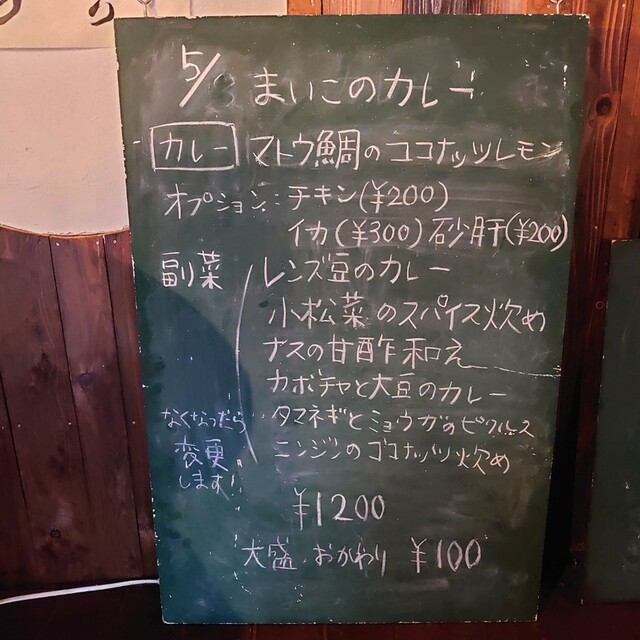 5/8 まいこのカレー
カレー マトウ鯛のココナッツレモン
オプション: チキン(¥200)
イカ(¥300) 砂肝(¥200)
副菜 レンズ豆のカレー
小松菜のスパイス炊め
ナスの甘酢和え
カボチャと大豆のカレー
なくなったら タマネギとミョウガのピクルス
変更 ニンジンのココナッツ炊め
します!
¥1200
大盛 おかわり ¥100